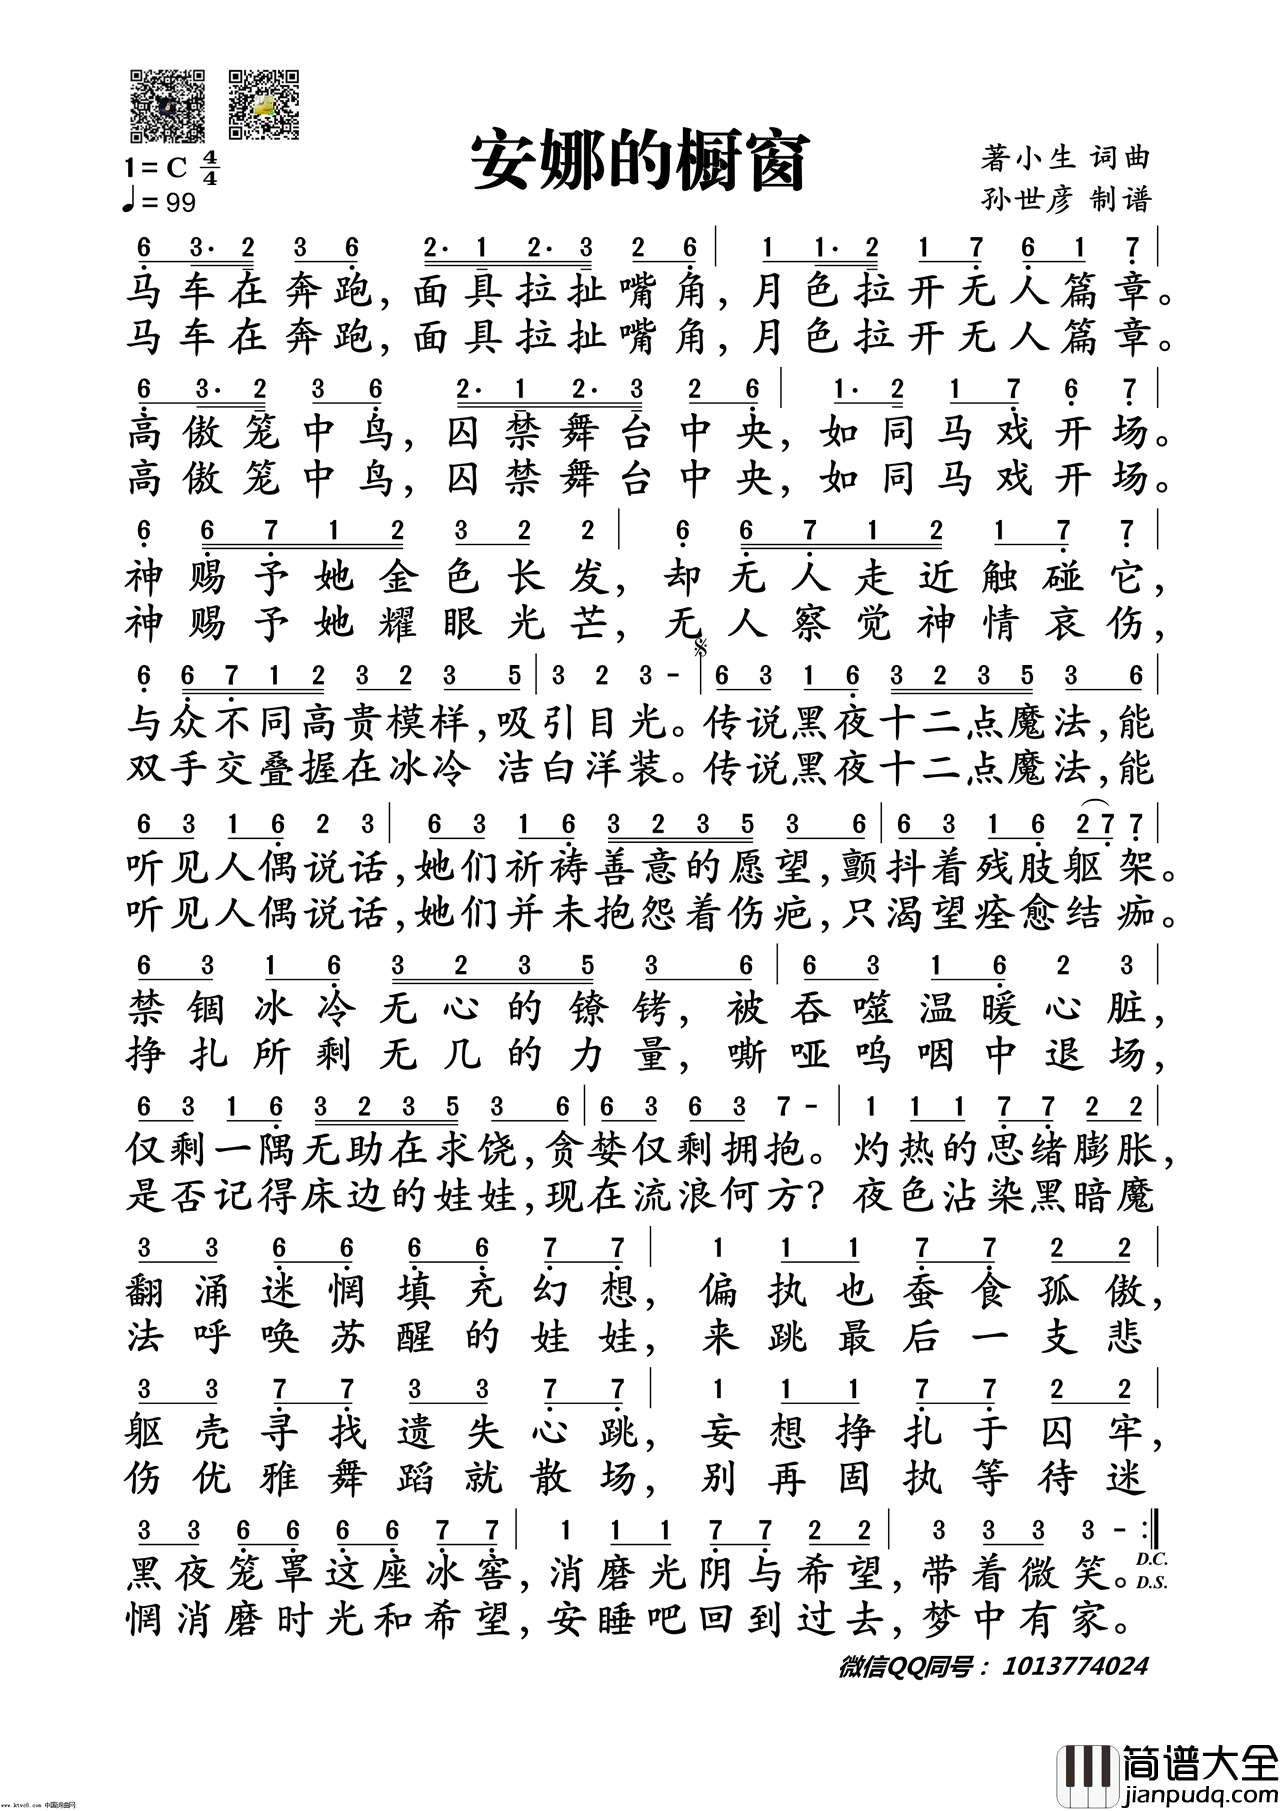 安娜的橱窗
1=C 4/4
♩=99
著小生 词曲
孙世彦 制谱
6 3· 2 3 6 2· 1 2· 3 2 6 | 1 1· 2 1 7 6 1 7 |
马车在奔跑，面具拉扯嘴角，月色拉开无人篇章。
马车在奔跑，面具拉扯嘴角，月色拉开无人篇章。
6 3· 2 3 6 2· 1 2· 3 2 6 | 1· 2 1 7 6 7 |
高傲笼中鸟，囚禁舞台中央，如同马戏开场。
高傲笼中鸟，囚禁舞台中央，如同马戏开场。
6 6 7 1 2 3 2 2 | 6 6 7 1 2 1 7 7 |
神赐予她金色长发，却无人走近触碰它，
神赐予她耀眼光芒，无人察觉神情哀伤，
6 6 7 1 2 3 2 3 5 | 3 2 3 - | 6 3 1 6 3 2 3 5 3 6 |
与众不同高贵模样，吸引目光。传说黑夜十二点魔法，能
双手交叠握在冰冷 洁白洋装。传说黑夜十二点魔法，能
6 3 1 6 2 3 | 6 3 1 6 3 2 3 5 3 6 | 6 3 1 6 2 7 7 |
听见人偶说话，她们祈祷善意的愿望，颤抖着残肢躯架。
听见人偶说话，她们并未抱怨着伤疤，只渴望痊愈结痂。
6 3 1 6 3 2 3 5 3 6 | 6 3 1 6 2 3 |
禁锢冰冷无心的镣铐，被吞噬温暖心脏，
挣扎所剩无几的力量，嘶哑呜咽中退场，
6 3 1 6 3 2 3 5 3 6 | 6 3 6 3 7 - | 1 1 1 7 7 2 2 |
仅剩一隅无助在求饶，贪婪仅剩拥抱。灼热的思绪膨胀，
是否记得床边的娃娃，现在流浪何方？夜色沾染黑暗魔
3 3 6 6 6 6 7 7 | 1 1 1 7 7 2 2 |
翻涌迷惘填充幻想，偏执也蚕食孤傲，
法呼唤苏醒的娃娃，来跳最后一支悲
3 3 7 7 3 3 7 7 | 1 1 1 7 7 2 2 |
躯壳寻找遗失心跳，妄想挣扎于囚牢，
伤优雅舞蹈就散场，别再固执等待迷
3 3 6 6 6 6 7 7 | 1 1 1 7 7 2 2 | 3 3 3 3 - :‖
黑夜笼罩这座冰窖，消磨光阴与希望，带着微笑。D.C.
D.S.
惘消磨时光和希望，安睡吧回到过去，梦中有家。
微信QQ同号：1013774024
简谱大全
jianpudq.com
www.ktvc8.com 中国词曲网